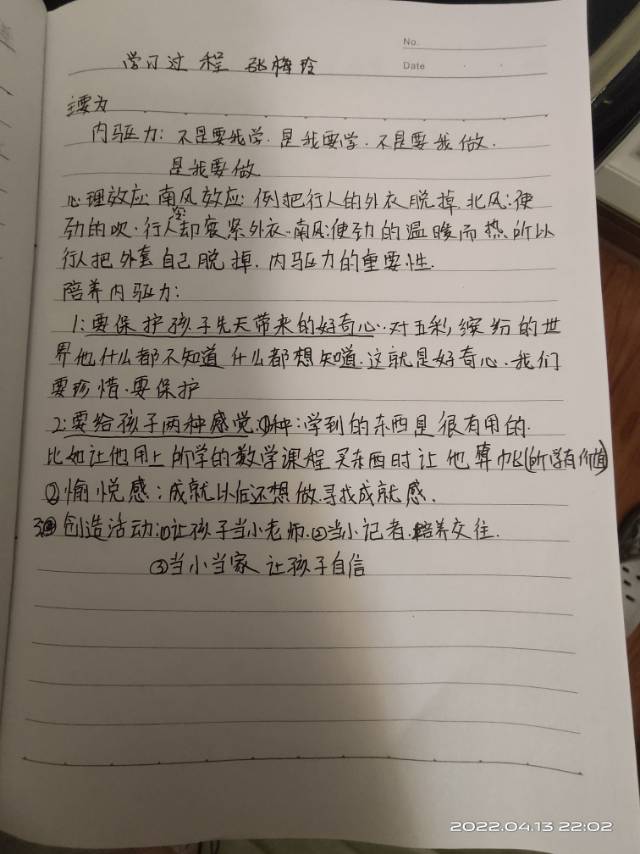 No.
Date
学习过程 张梅玲
主要为
内驱力: 不是要我学.是我要学.不是要我做.
是我要做
心理效应 南风效应: 例把行人的外衣脱掉 北风:使
劲的吹.行人却裹紧外衣.南风:使劲的温暖而热所以
行人把外套自己脱掉.内驱力的重要性.
陪养内驱力:
1:要保护孩子先天带来的好奇心.对五彩缤纷的世
界他什么都不知道 什么都想知道.这就是好奇心.我们
要珍惜.要保护
2:要给孩子两种感觉①种:学到的东西是很有用的.
比如让他用上所学的数学课程 买东西时让他算帐(所学有价值)
②愉悦感:成就以后还想做寻找成就感.
3 创造活动:①让孩子当小老师.②当小记者.培养交往.
③当小当家 让孩子自信
2022.04.13 22:02